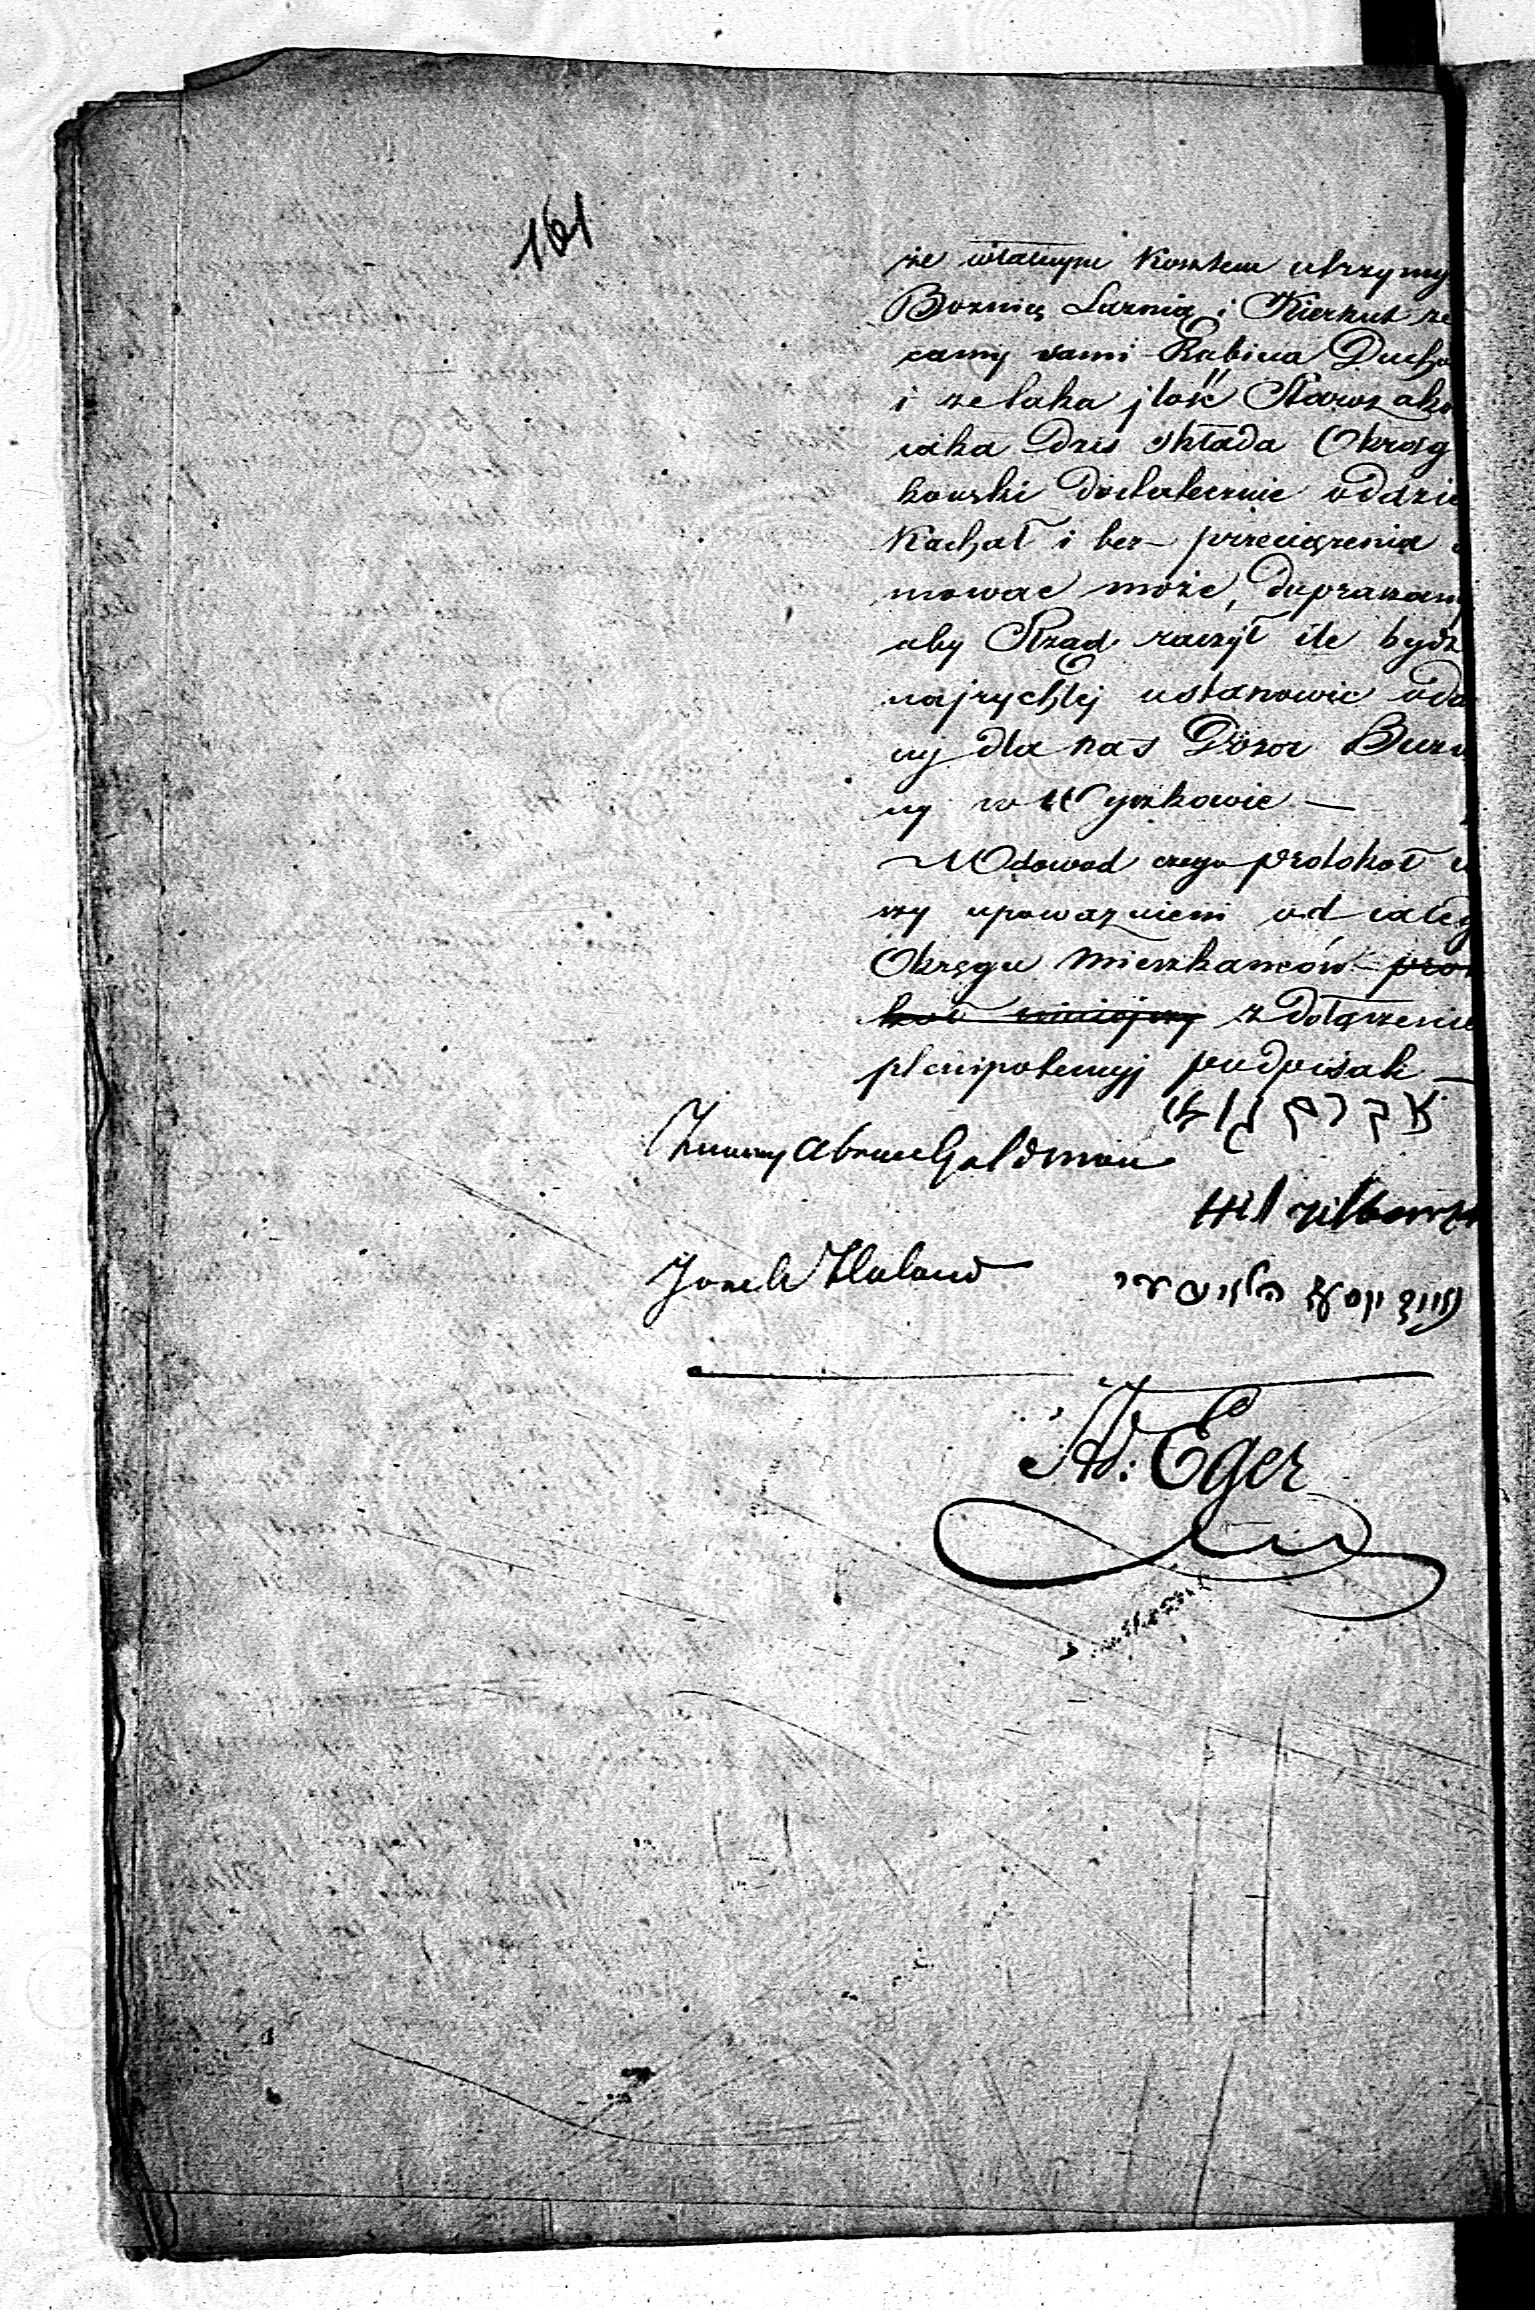 161
że własnym Kosztem utrzymy
Boznicę Łaznią i Kierkut że
camy sami Rabina Ducho
i że taka jlość Starozako
iaka dziś składa Okrąg
kowski dostatecznie oddzie
Kachał i bez przeciążenia
mować może, dupraszamy
aby Rząd raczył ile bydz
najrychlej ustanowić odd
ny dla nas Dozor Buzn
ny w Wyszkowie —
W dowod czego protokoł
szy upoważnieni od całeg
Okręgu Mieszkancow pro
koł niniejszy z dołączenie
plenipotencyj podpisali —
אברהם
Abram Goldman
Josek Holand
Ad: Eger